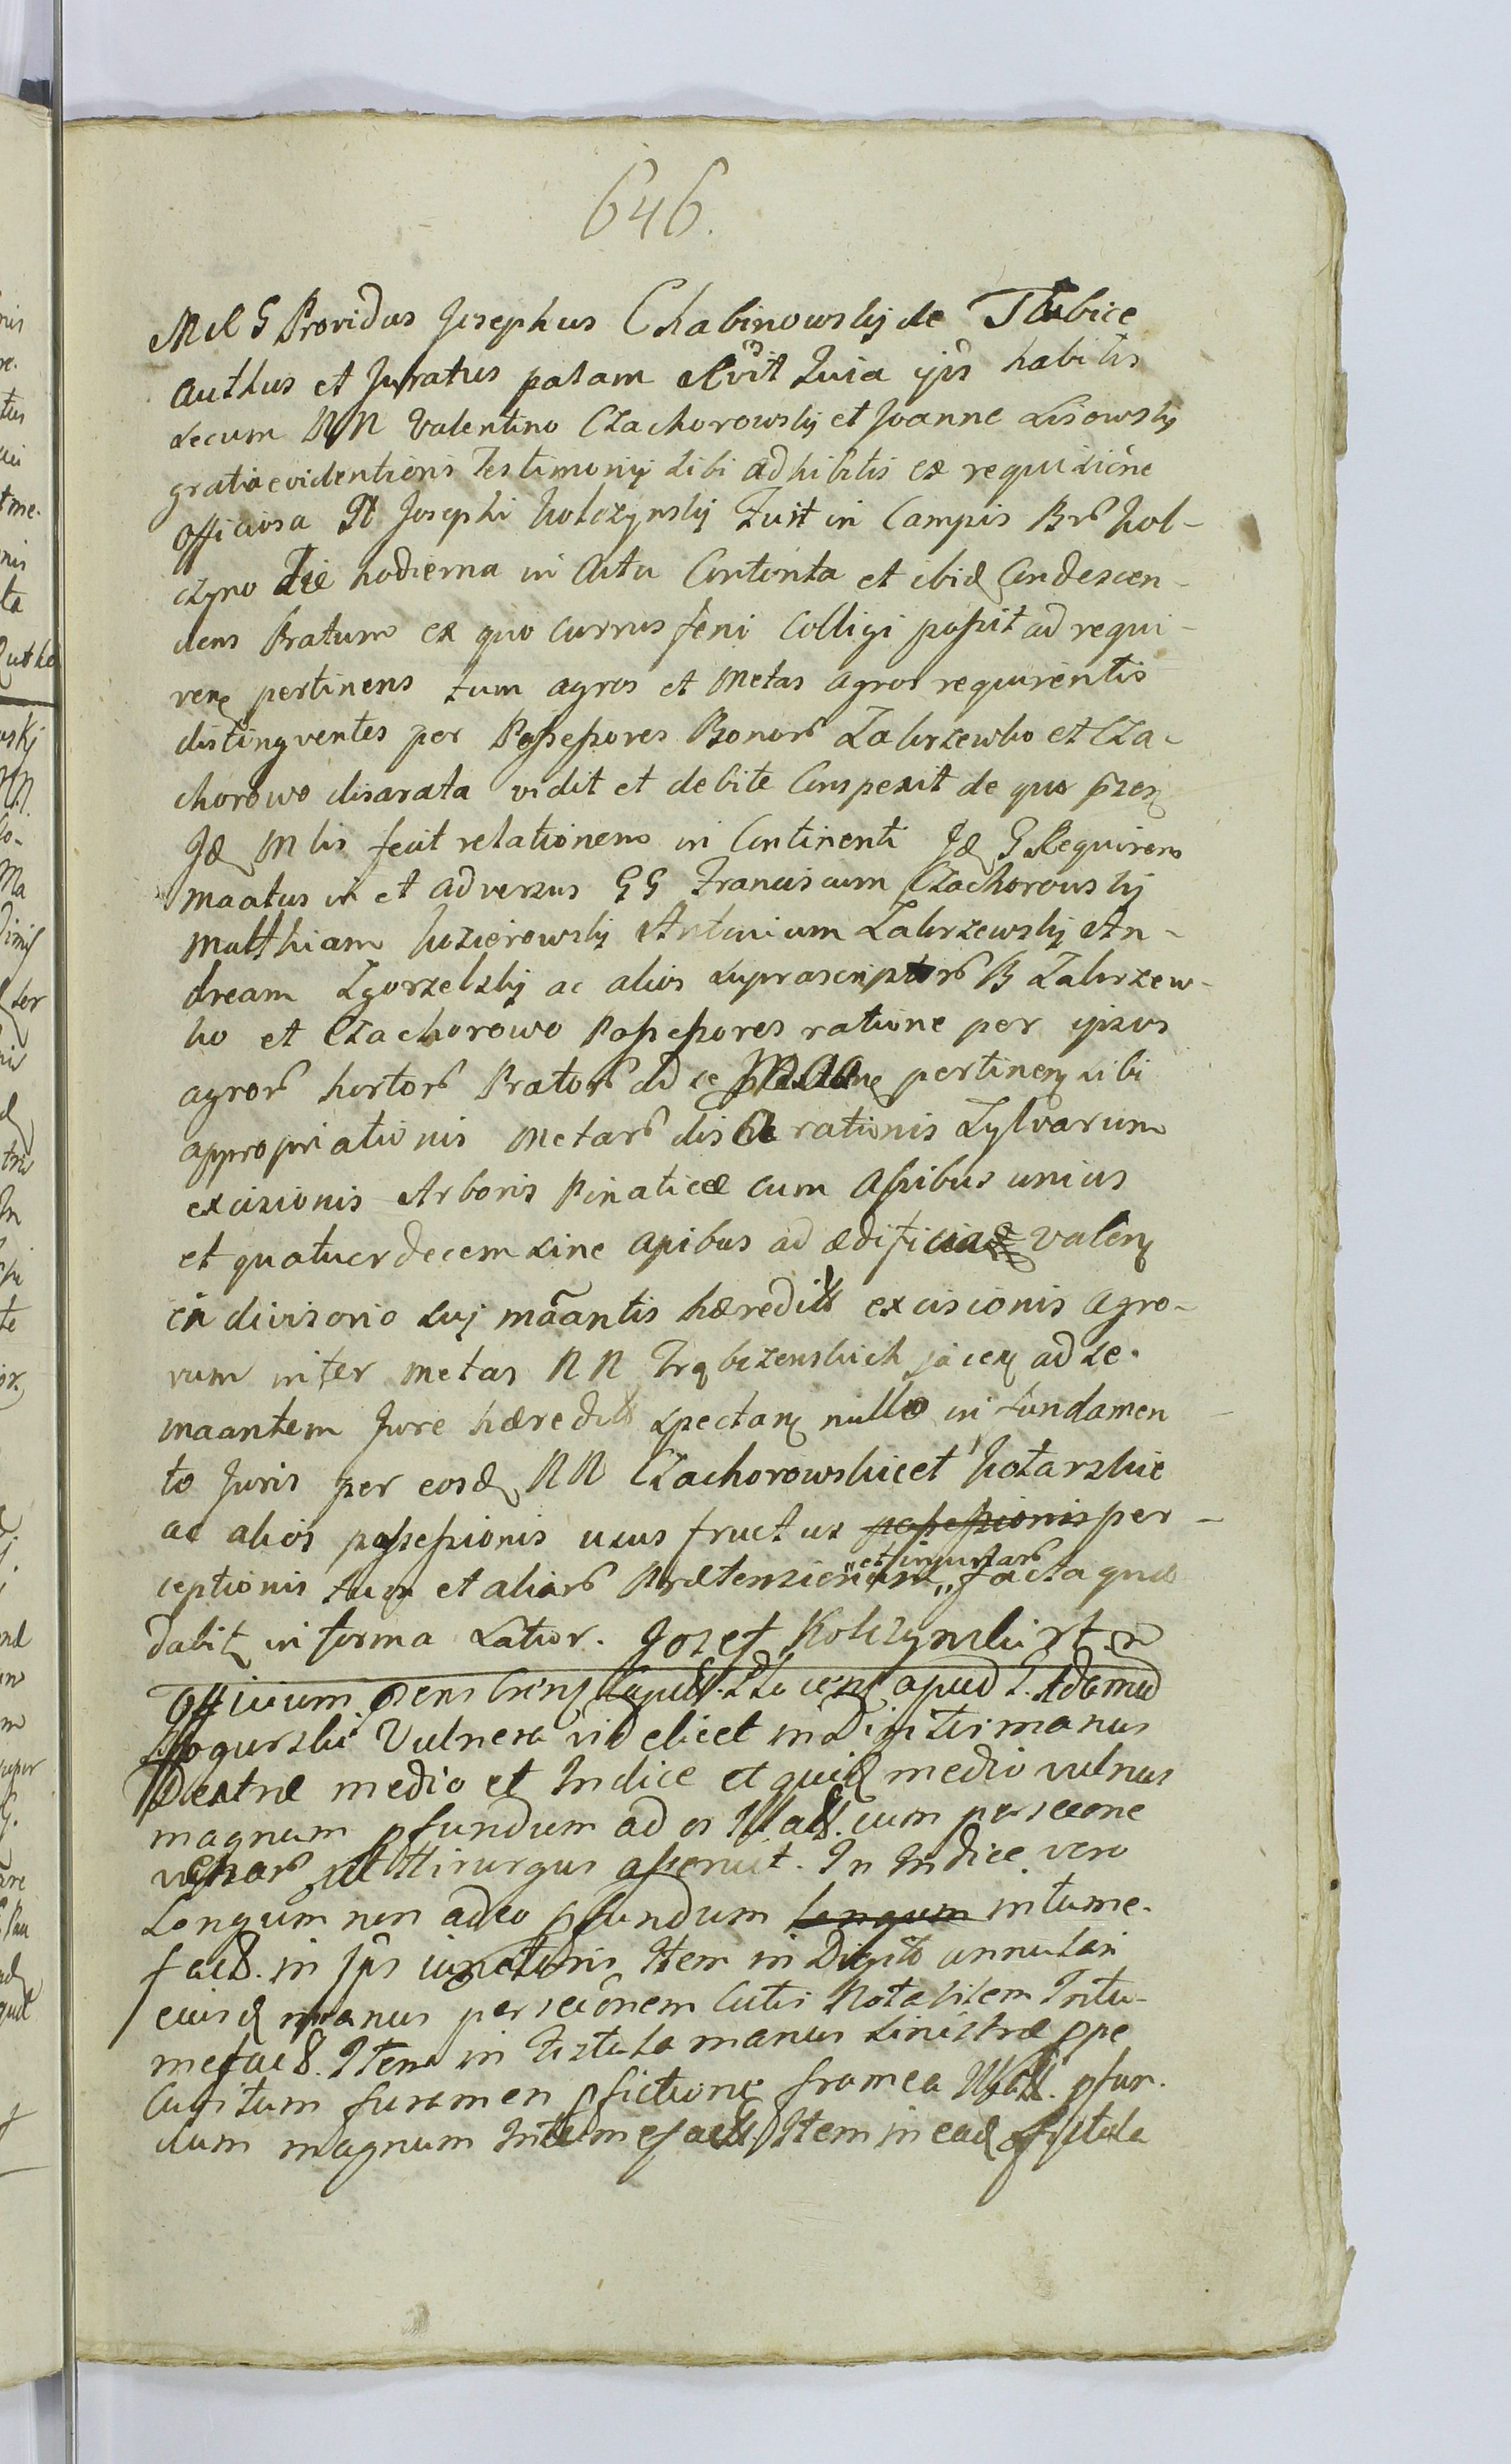 646.
Mil G Providus Josephus Chabinowskij de Tlubice
authus et Juratus palam rlvit Quia ijs habitis
secum NN Valentino Czachorowskij et Joanne Lisowskij
gratia evidentioris Testimonij sibi adhibitis ex requisióne
officiosa Josephi Kolczynskij Fuit in Campis Br Kol-
czyno Die hodierna in Actu Contenta et ibid Condescen-
dens Pratum ex quo currus feni Colligi poßit ad requi-
ren pertinens tum agros et Metas agror requirentis
distingventes per Poßeßores Bonor Zakrzewko et Cza-
chorowo disarata vidit et debite Conspexit de quo przn
Jd Mlis fecit relationem in Continenti Jd G Requirens
maatus in et adversus GG Franciscum Czachorowskij
Matthiam Juzierowskij Antonium Zakrzewskij An-
dream Zgorzelskij ac alios suprascriptor B Zakrzew-
ko et Czachorowo Poßeßores ratione per ipsos
agror hortor Prator ad se pertinen sibi
appropriationis Metar disarationis Sylvarum
excisionis Arboris Pinaticæ cum Apibus unius
et quatuordecem sine apibus ad ædificia valen
in divisorio suj maantis hæredit excisionis agro-
rum inter metas NN Trębczenskich jacen ad se
maantem Jure hæredit spectan nullo in fundamen
to Juris per eosd NN Czachorowskie et Kotarskie
ac alios poßeßionis usus fructus poßeßionis per-
ceptionis tum et aliar Prætensionum „et iniuriar„ facta quæ
dabit in forma Latior. Jozef Kolczynski
Officium apud G. Adamud
Vulnera videlicet in Digitis manus
Dextræ medio et Indice et quid medio vulnus
magnum pfundum ad os cum persecone
venar ut Hirurgus aßeruit. In Indice vero
Longum non adeo pfundum longum intume-
fact. in Jps iuncturis Item in Digito annulari
eiusd manus persecónem Cutis Notabilem Intu-
mefact. Item in Fistula manus sinistræ ppe
Cubitum foramen pfictione framea pfun-
dum magnum Intumefact. Item in ead fistula